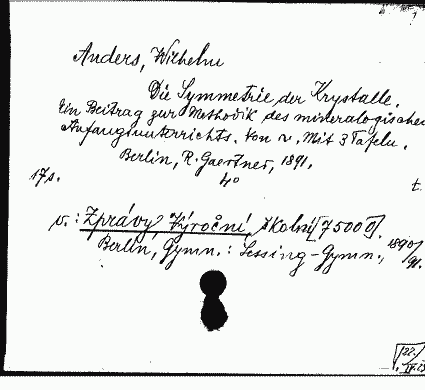 Anders, Wilhelm
Die Symmetrie der Krystalle.
Ein Beitrag zur Methodik des mineralogischen
Anfangsunterrichts. Von ~. Mit 3 Tafeln.
Berlin, R. Gaertner, 1891.
17 s. 4° t.
v.: Zprávy, Výroční, školní [7500 0].
Berlin, Gymn.: Lessing-Gymn., 1890/91.